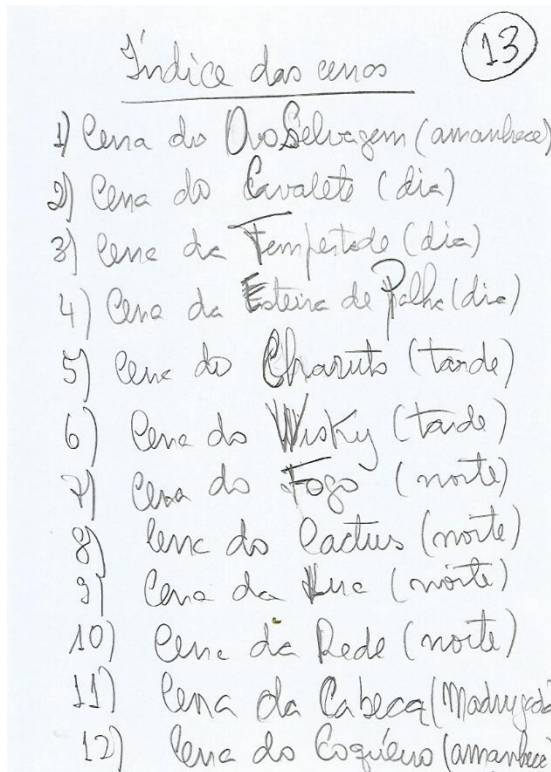 Índice das cenas
13
1) Cena do Ovo Selvagem (amanhece)
2) Cena do Cavalete (dia)
3) Cena da Tempestade (dia)
4) Cena da Esteira de Palha (dia)
5) Cena do Charuto (tarde)
6) Cena do Wisky (tarde)
7) Cena do Fogo (noite)
8) Cena do Cactus (noite)
9) Cena da Lua (noite)
10) Cena da Rede (noite)
11) Cena da Cabeça (Madrugada
12) Cena do Coqueiro (amanhece